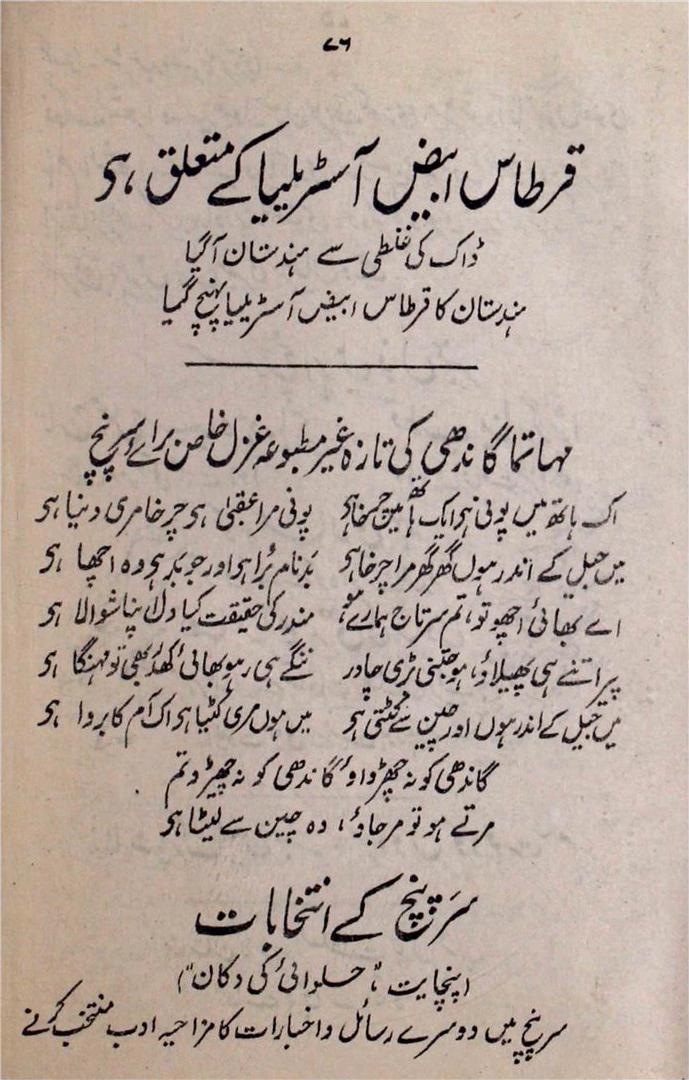 ۷۶
قرطاس ابیض آسٹریلیا کے متعلق ہی
ڈاک کی غلطی سے ہندستان آگیا
ہندستان کا قرطاس ابیض آسٹریلیا پہنچ گیا
مہاتما گاندھی کی تازہ غیر مطبوعہ غزل خاص برائے سرپنچ
اک ہاتھ میں پونی ہو ایک ہاتھ میں چرخا ہو پونی مرا عقبیٰ ہی چرخا مری دنیا ہی
میں جیل کے اندر ہوں گھر گھر مرا چرخا ہی بدنام بُرا ہو اور جو بد ہی وہ اچھا ہی
اے بھائی اچھوتو، تم سرتاج ہمارے ہو، مندر کی حقیقت کیا دل اپنا شوالا ہی
پیر اتنے ہی پھیلاؤ، ہو جتنی بڑی چادر ننگے ہی رہو بھائی کھدّر بھی تو مہنگا ہی
میں جیل کے اندر ہوں اور چین سے کٹتی ہی میں ہوں مری کٹیا ہو اک آم کا بروا ہی
گاندھی کو نہ چھڑواؤ گاندھی کو نہ چھیڑو تم
مرتے ہو تو مر جاؤ، وہ چین سے لیٹا ہی
سرپنچ کے انتخابات
(پنچایت، "حلوائی کی دکان")
سرپنچ میں دوسرے رسائل و اخبارات کا مزاحیہ ادب منتخب کرنے